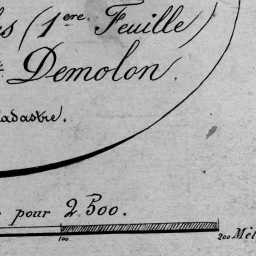 (1ere. Feuille)
Demolon.
cadastre.
pour 2500.
100 200 Mét